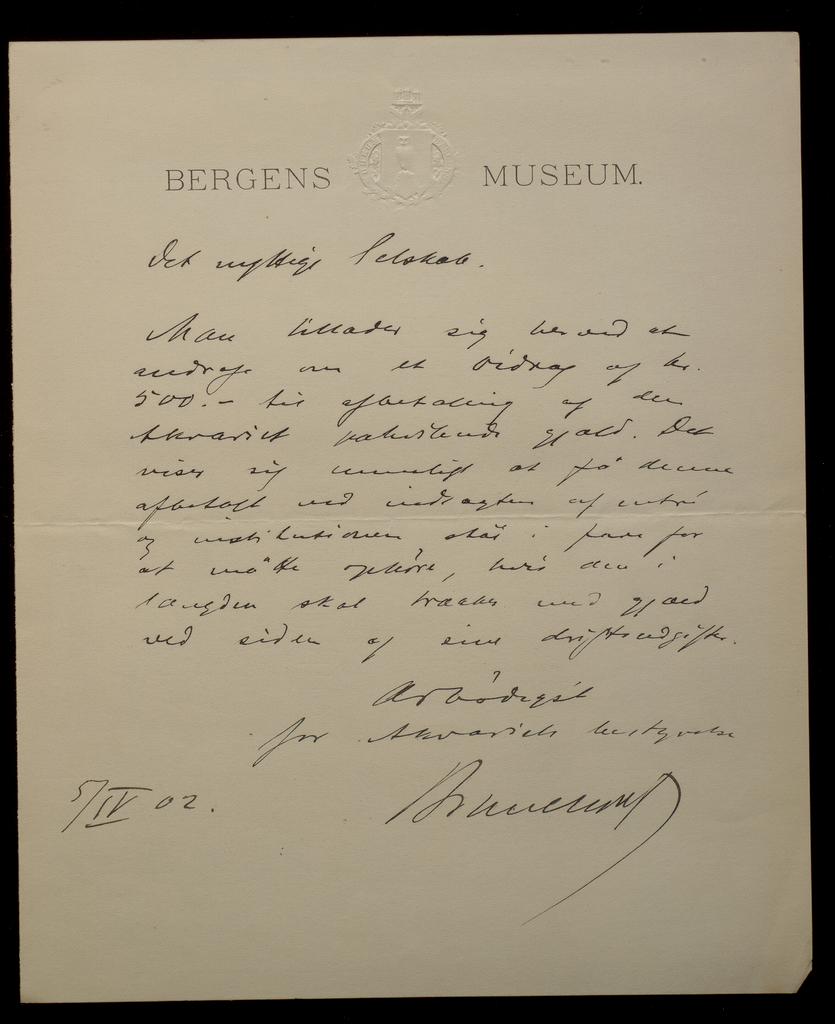 BERGENS MUSEUM.
Det nyttige Selskab.
Man tillader sig herved at
andrage om et bidrag af kr.
500.- til afbetaling af den
Akvariet påhvilende gjæld. Det
viser sig umuligt at få denne
afbetalt ved indtægten af entré
og institutionen står i fare for
at måtte ophöre, hvis den i
længden skal trækkes med gjæld
ved siden af sine driftsudgifter.
Ærbödigst
for Akvariets bestyrelse
5/IV 02.